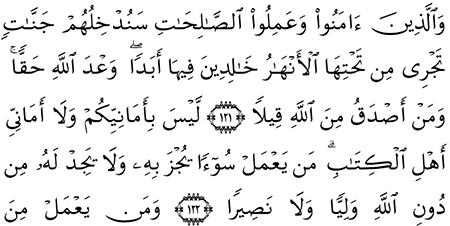 وَٱلَّذِينَ ءَامَنُوا۟ وَعَمِلُوا۟ ٱلصَّـٰلِحَـٰتِ سَنُدْخِلُهُمْ جَنَّـٰتٍ
تَجْرِى مِن تَحْتِهَا ٱلْأَنْهَـٰرُ خَـٰلِدِينَ فِيهَآ أَبَدًا ۖ وَعْدَ ٱللَّهِ حَقًّا ۚ
وَمَنْ أَصْدَقُ مِنَ ٱللَّهِ قِيلًا ﴿١٢١﴾ لَّيْسَ بِأَمَانِيِّكُمْ وَلَآ أَمَانِىِّ
أَهْلِ ٱلْكِتَـٰبِ ۗ مَن يَعْمَلْ سُوٓءًا يُجْزَ بِهِۦ وَلَا يَجِدْ لَهُۥ مِن
دُونِ ٱللَّهِ وَلِيًّا وَلَا نَصِيرًا ﴿١٢٢﴾ وَمَن يَعْمَلْ مِنَ